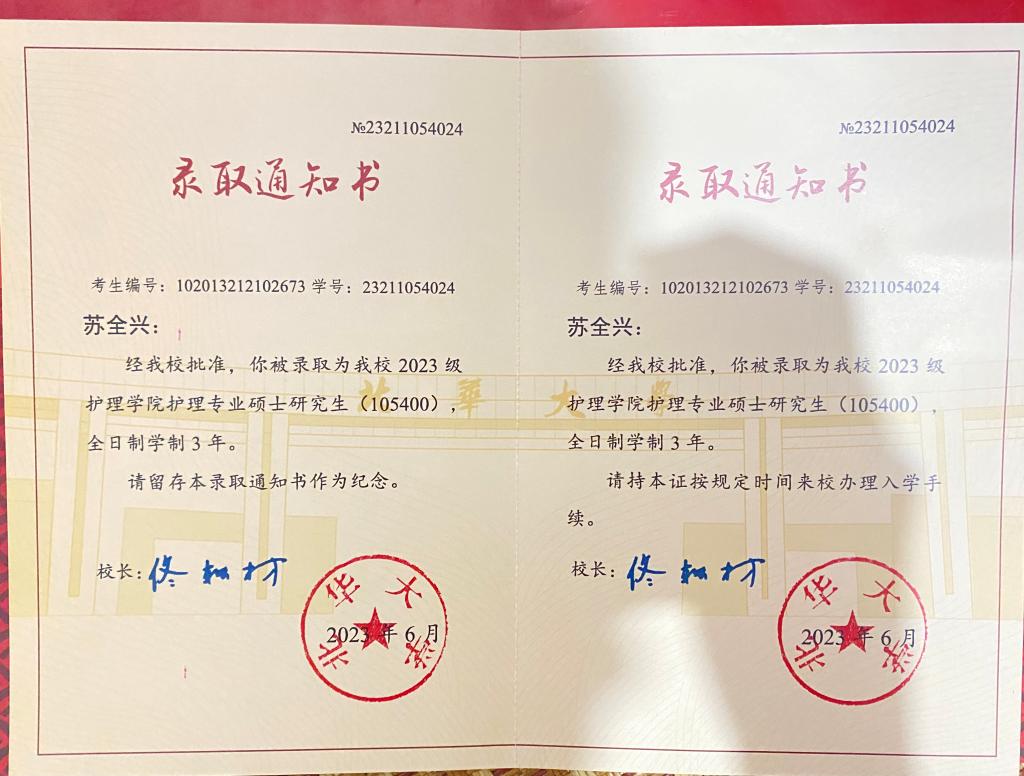 №23211054024
录取通知书
考生编号：102013212102673 学号：23211054024
苏全兴：
经我校批准，你被录取为我校 2023 级
护理学院护理专业硕士研究生（105400），
全日制学制 3 年。
请留存本录取通知书作为纪念。
校长：
2023 年 6 月
北华大学
№23211054024
录取通知书
考生编号：102013212102673 学号：23211054024
苏全兴：
经我校批准，你被录取为我校 2023 级
护理学院护理专业硕士研究生（105400），
全日制学制 3 年。
请持本证按规定时间来校办理入学手
续。
校长：
2023 年 6 月
北华大学
北華大學